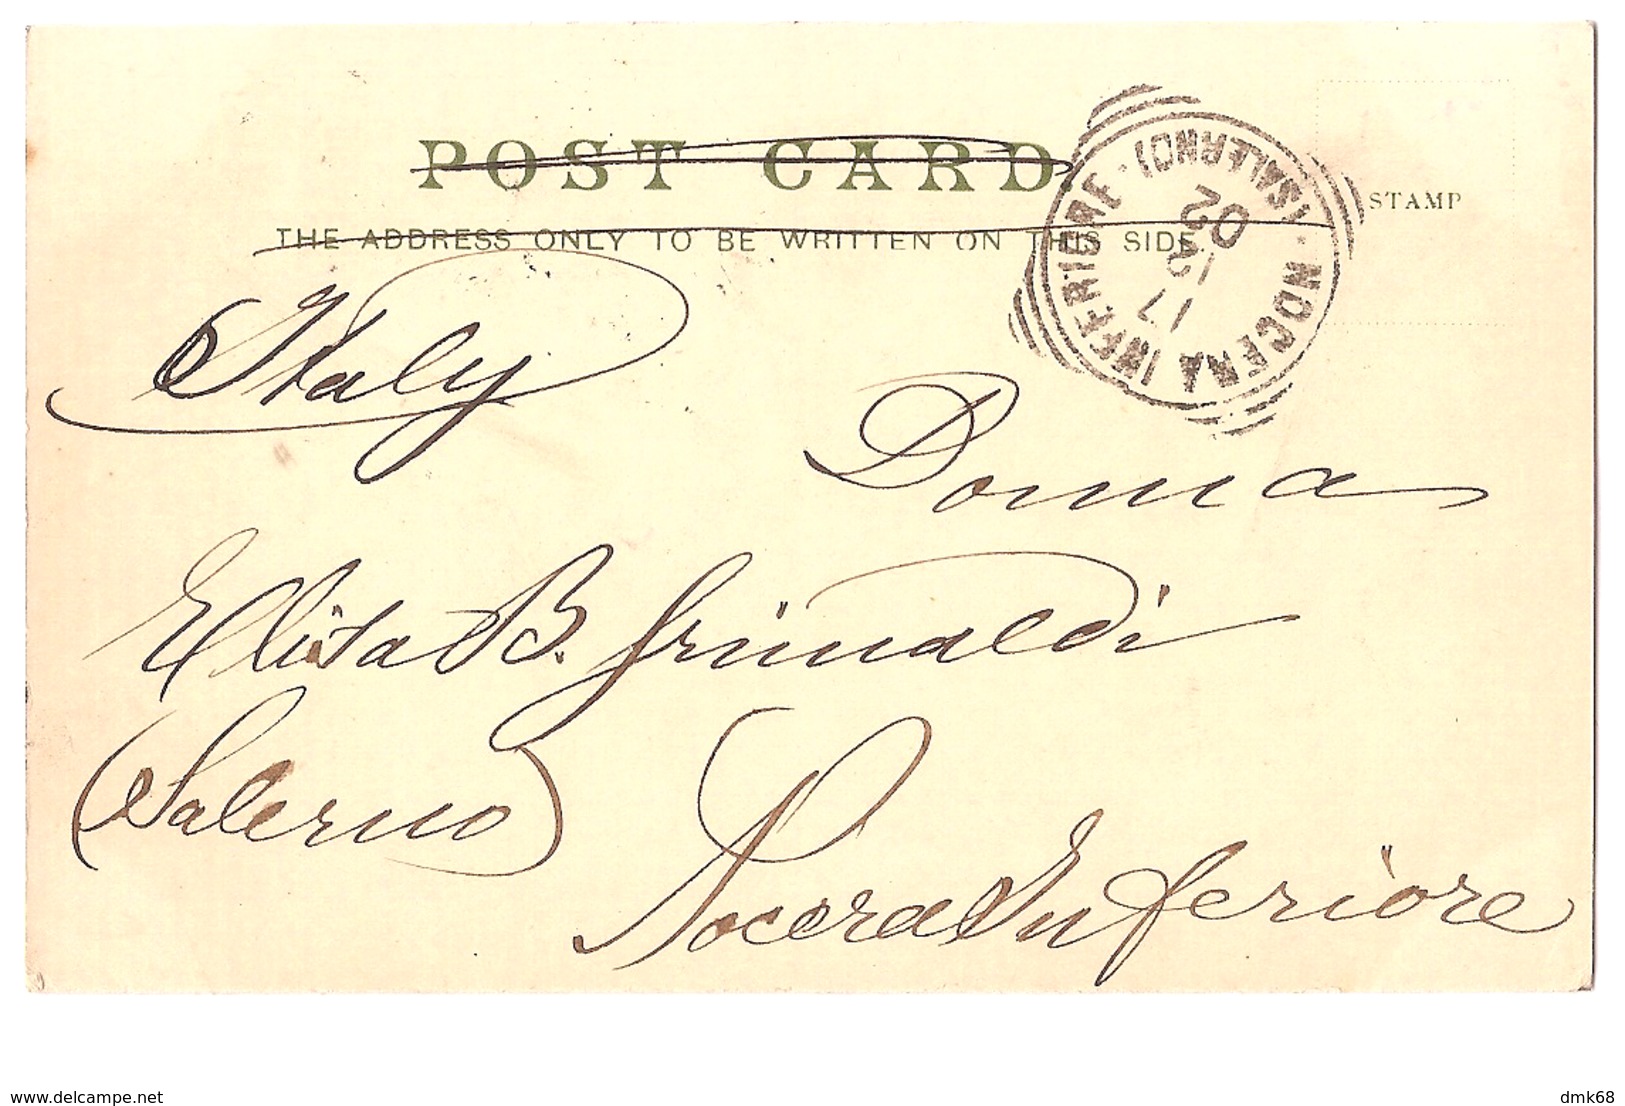 POST CARD
THE ADDRESS ONLY TO BE WRITTEN ON THIS SIDE.
STAMP
NOCERA INFERIORE · (SALERNO) ·
17
02
Italy
Donna
Elisa B. Grimaldi
(Salerno)
Nocera Inferiore
www.delcampe.net
dmk68